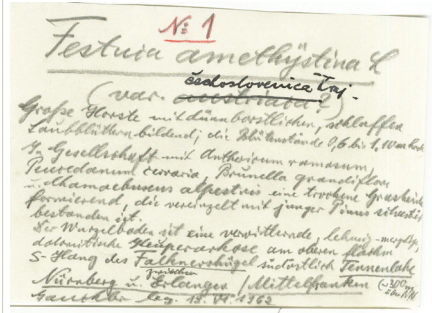 № 1
Festuca amethystina L
čechoslovenica Traj.
(var. austriaca?)
Große Horste mit dünnborstlichen, schlaffen
Laubblättern bildend; die Blütenstände 0,6 bis 1,10 m hoch
In Gesellschaft mit Anthericum ramosum,
Peucedanum cervaria, Brunella grandiflora
u. Chamaebuxus alpestris eine trockene Grasheide
formierend, die vereinzelt mit junger Pinus silvestris
bestanden ist.
Der Wurzelboden ist eine verwitternde, lehmig-mergelige,
dolomitische Keuperarkose am oberen flachen
S-Hang des Falknershügel südöstlich Tennenlohe
zwischen
Nürnberg u. Erlangen / Mittelfranken (~300 m
über NN)
Gauckler leg. 13. VI. 1962